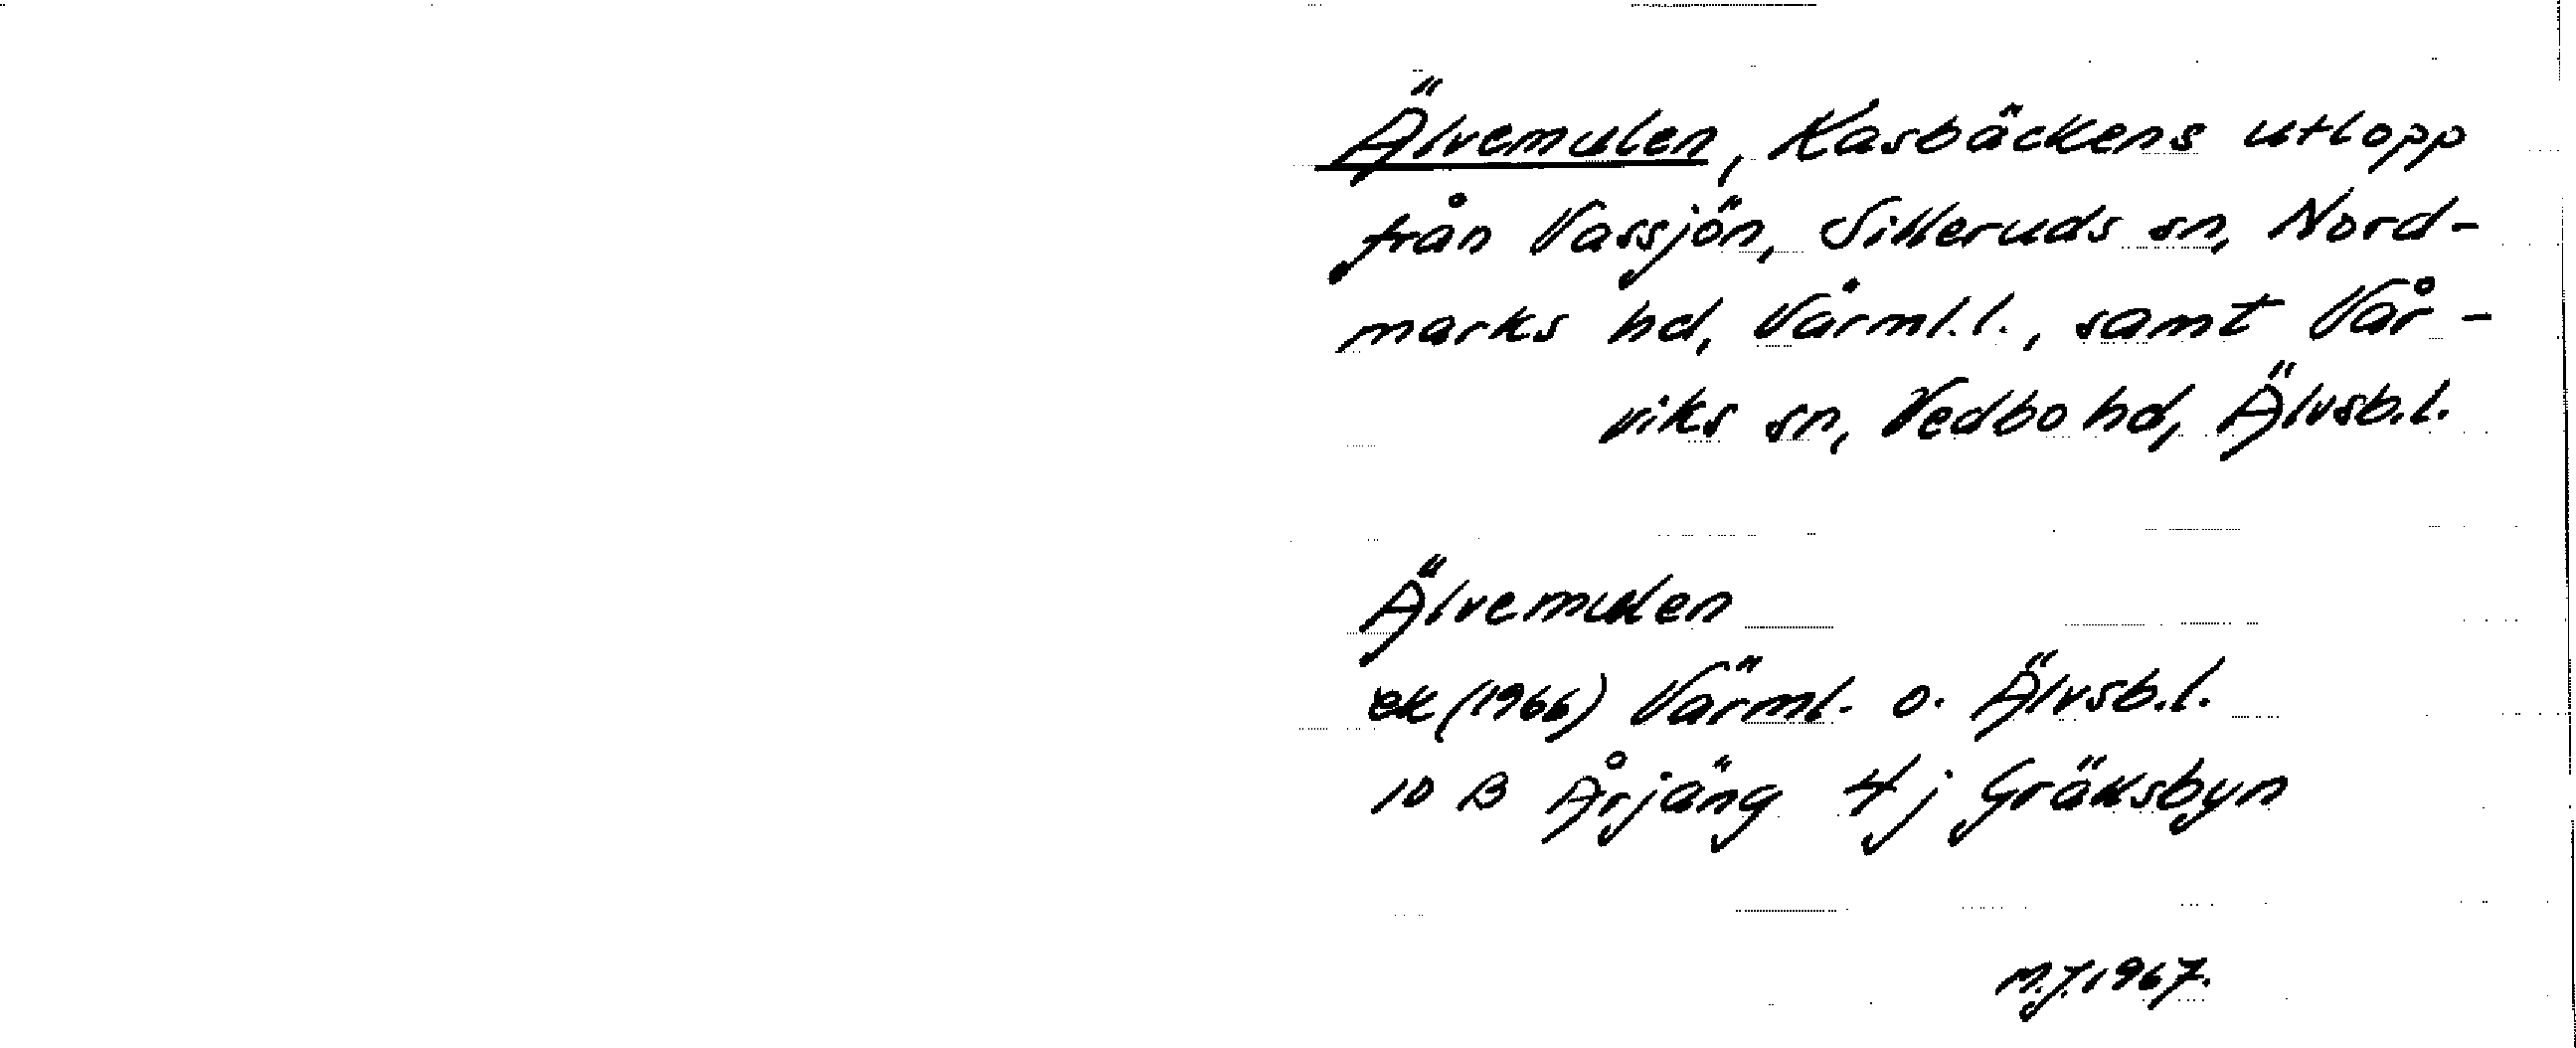 Älvemulen, Kasbäckens utlopp
från Vassjön, Silleruds sn, Nord-
marks hd, Värml.l., samt Vår-
viks sn, Vedbo hd, Älvsb.l.
Älvemulen
ek (1966) Värml. o. Älvsb.l.
10 B Årjäng 4j Gräksbyn
M.J. 1967.